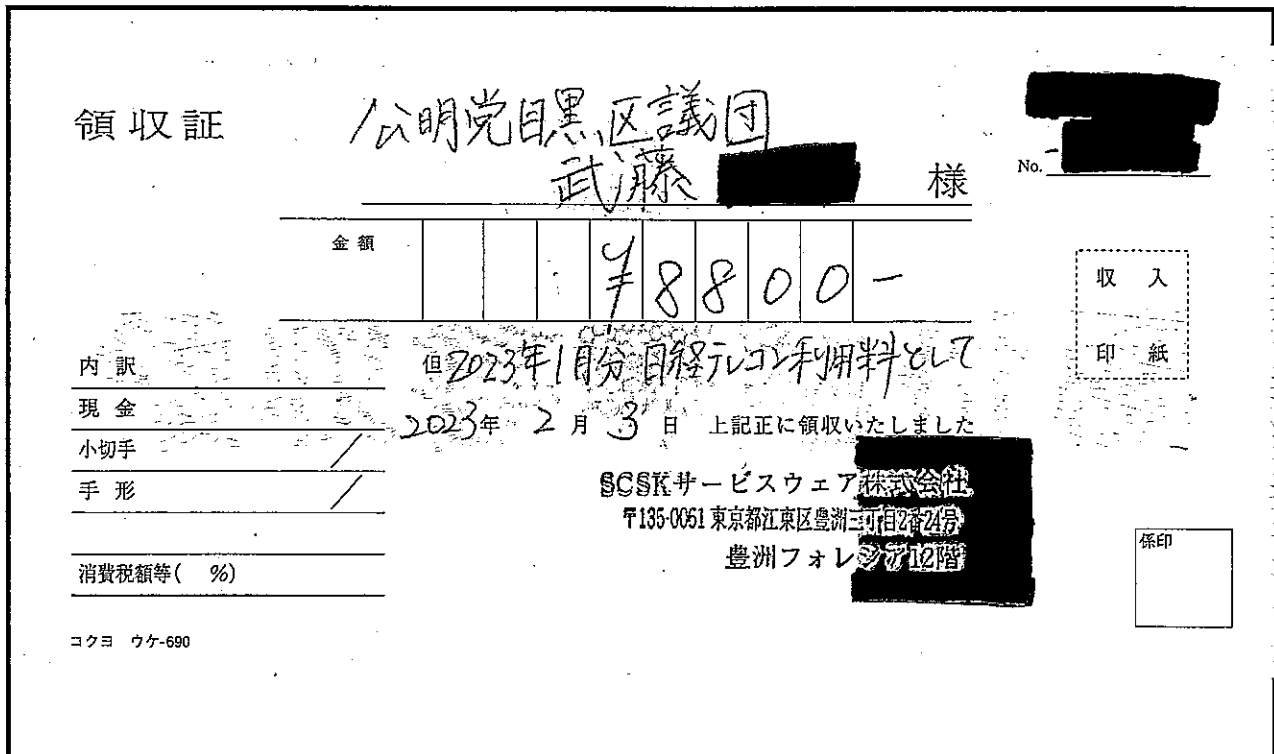 領収証
公明党目黒区議団
武藤 様
No.
金額
¥8800-
収入
印紙
内訳
但2023年1月分 日経テレコン利用料として
現金
2023年 2月 3日 上記正に領収いたしました
小切手 /
手形 /
SCSKサービスウェア株式会社
〒135-0061 東京都江東区豊洲三丁目2番24号
豊洲フォレシア12階
係印
消費税額等( %)
コクヨ ウケ-690